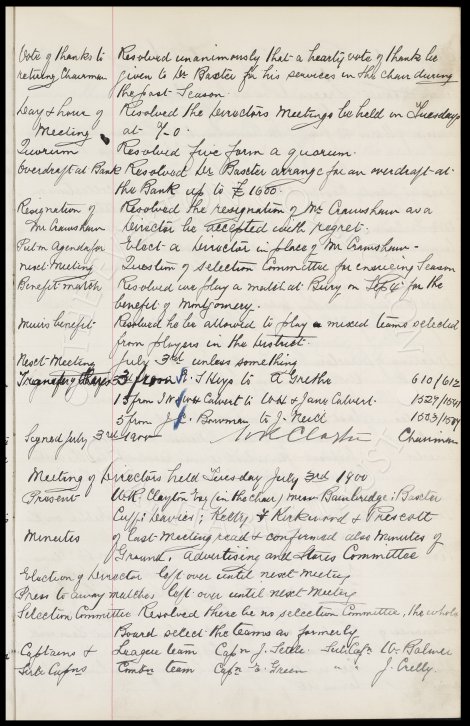 Vote of thanks to Resolved unanimously that a hearty vote of thanks be
retiring Chairman given to Dr Baxter for his services in the Chair during
the past Season.
Day & hour of Resolved the Directors Meetings be held on Tuesdays
Meeting at 7-0.
Quorum Resolved five form a quorum.
Overdraft at Bank Resolved Dr Baxter arrange for an overdraft at
the Bank up to £1000.
Resignation of Resolved the resignation of Mr Crawshaw as a
Mr Crawshaw Director be accepted with regret.
Put on Agenda for Elect a Director in place of Mr Crawshaw -
next Meeting Question of Selection Committee for ensuing Season
Benefit match Resolved we play a match at Bury on for the
benefit of Montgomery.
Muirs benefit Resolved he be allowed to play a mixed team selected
from players in the District.
Next Meeting July 3rd unless something
Transfer of Shares 3 from T Heys to A Gretha 610/612
15 from Calvert to & Jane Calvert 1527/1541
5 from Bowman to J. 1503/1507
Signed July 3rd 1900 W R Clayton Chairman
Meeting of Directors held Tuesday July 3rd 1900
Present W.R. Clayton Esq (in the Chair) Messrs Bainbridge; Baxter
Cuff; Davies; Kelly; Kirkwood & Prescott
Minutes of last Meeting read & confirmed also Minutes of
Ground, Advertising and Stores Committee
Election of Director left over until next Meeting
Press to away matches left over until next Meeting
Selection Committee Resolved there be no selection Committee, the whole
Board select the teams as formerly
Captains & League team Capn J. Settle. Sub Capn W. Balmer
Sub Capns Combn team Capn E. Green " " J. Crelly.